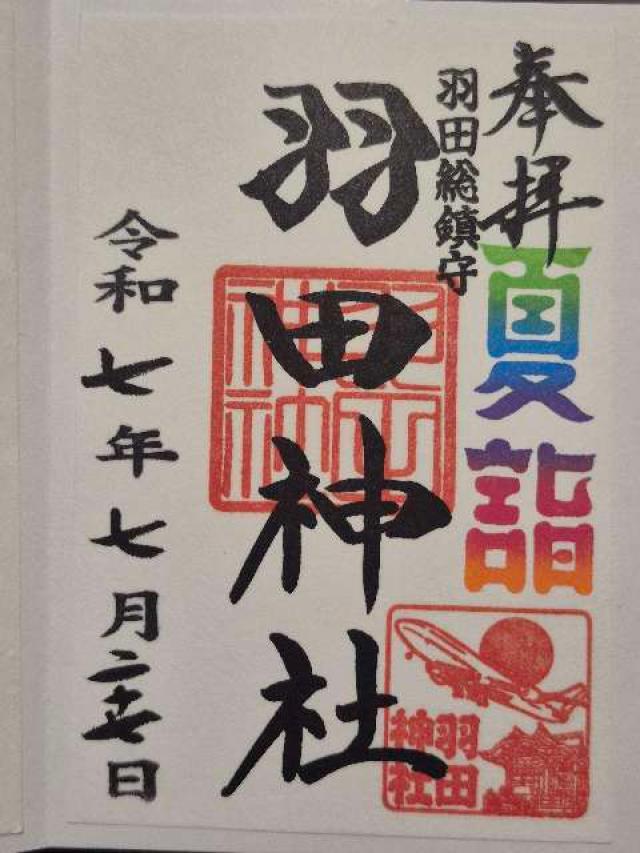 奉拝
羽田総鎮守
夏詣
羽田神社
令和七年七月二十七日
羽田
神社